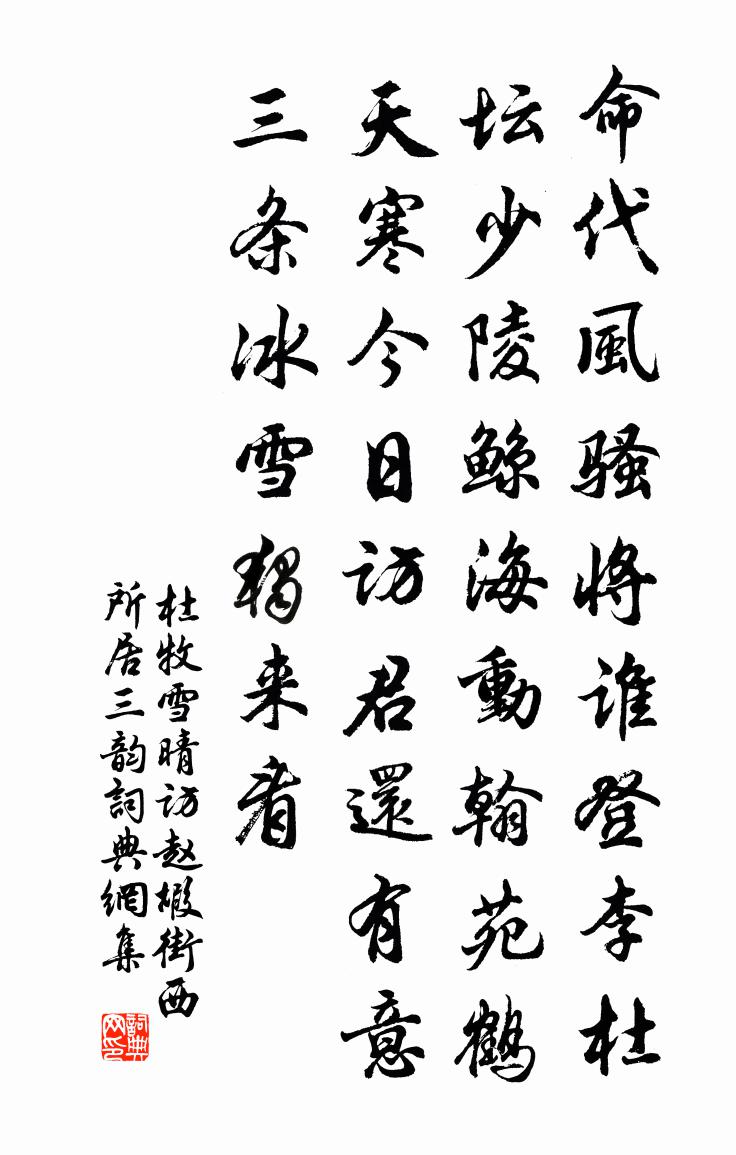 命代風骚將谁登李杜
坛少陵鲸海動翰苑鹤
天寒今日访君還有意
三条冰雪獨来看
杜牧雪晴访赵嘏街西
所居三韵詞典網集
詞典网印